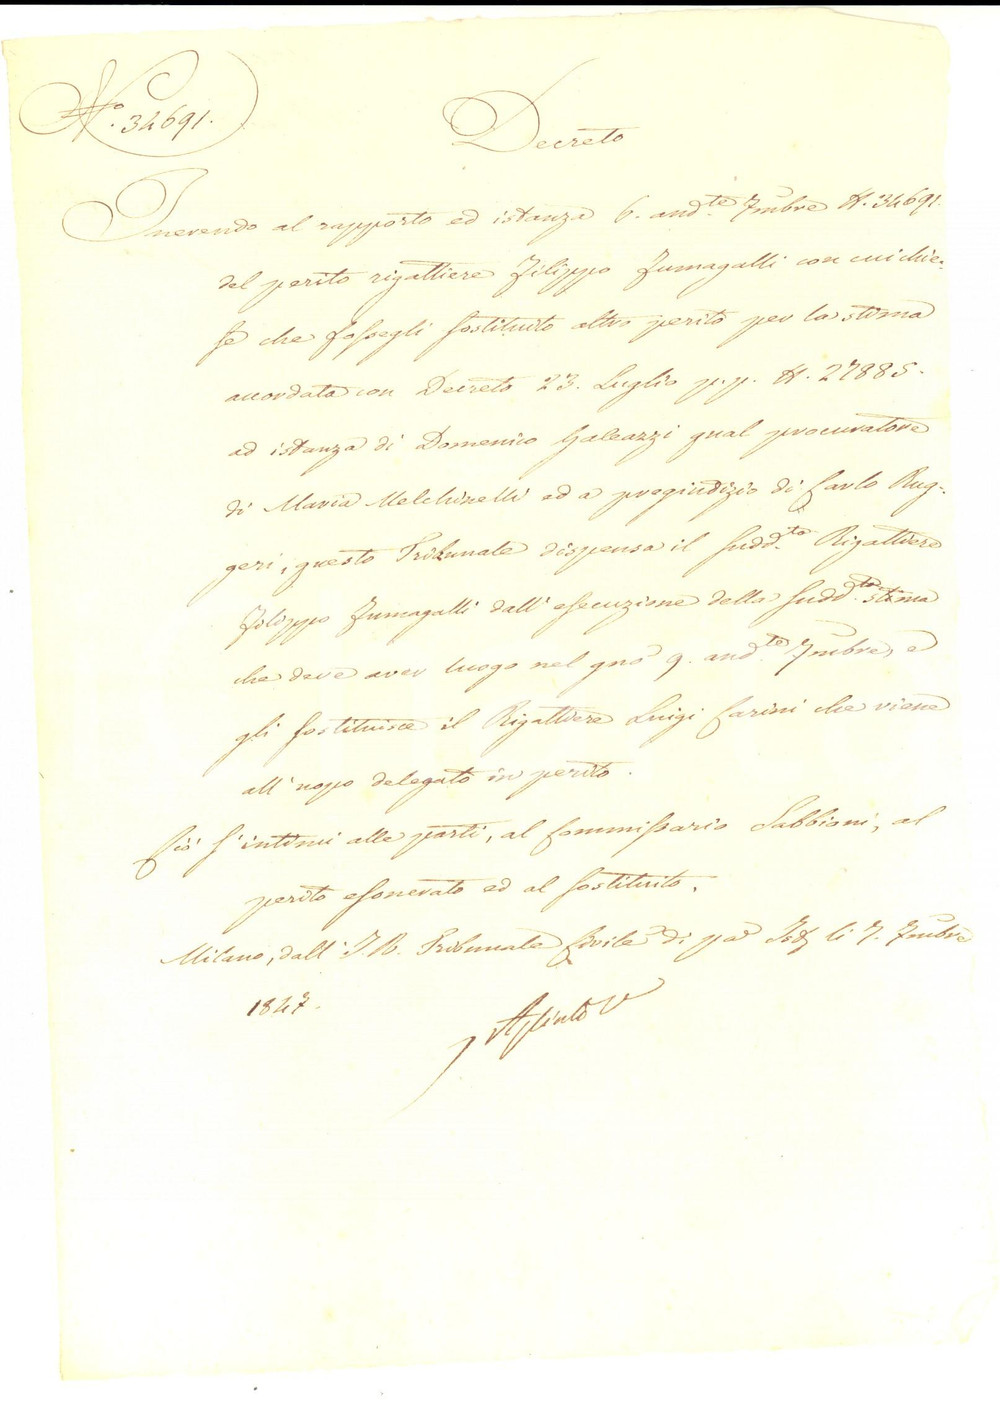 N.° 34691.
Decreto
Inerendo al rapporto ed istanza 6. and.te 7mbre N. 34691.
del perito rigattiere Filippo Fumagalli con cui chie-
se che fossegli sostituito altro perito per la stima
accordata con Decreto 23. Luglio p.p. N. 27885.
ad istanza di Domenico Galeazzi qual procuratore
di Maria Melchirelli ed a pregiudizio di Carlo Rug-
geri, questo Tribunale dispensa il sudd.to Rigattiere
Filippo Fumagalli dall'esecuzione della sudd.ta stima
che deve aver luogo nel gno 9. and.te 7mbre, e
gli sostituisce il Rigattiere Luigi Carini che viene
all'uopo delegato in perito.
Ciò s'intimi alle parti, al Commissario Sabbioni, al
perito esonerato ed al sostituito.
Milano, dall'I. R. Tribunale Civile di pa Is. li 7. 7mbre
1847.